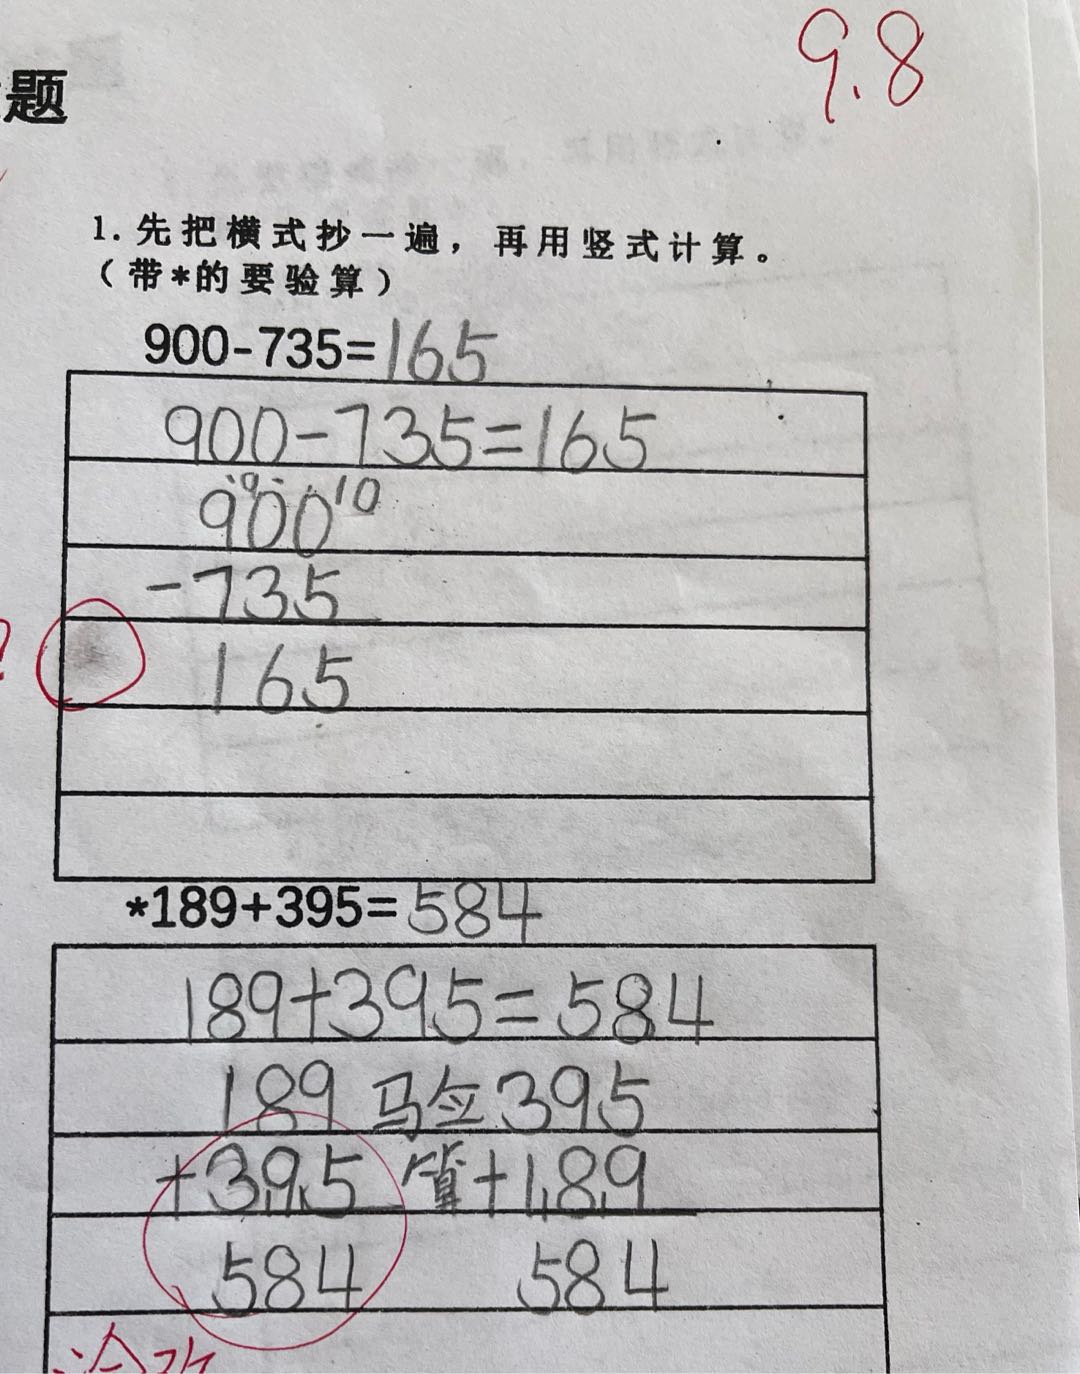 题
9.8
1.先把横式抄一遍，再用竖式计算。
（带*的要验算）
900-735=165
900-735=165
9
900 10
-735
165
*189+395=584
189+395=584
189 验 395
+395 算 +189
584 584